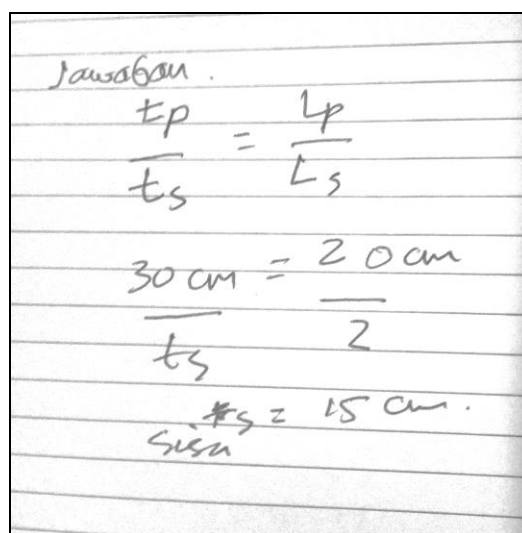 Jawaban.
tp/ts = Lp/Ls
30 cm/ts = 20 cm/2
s = 15 cm.
sisa